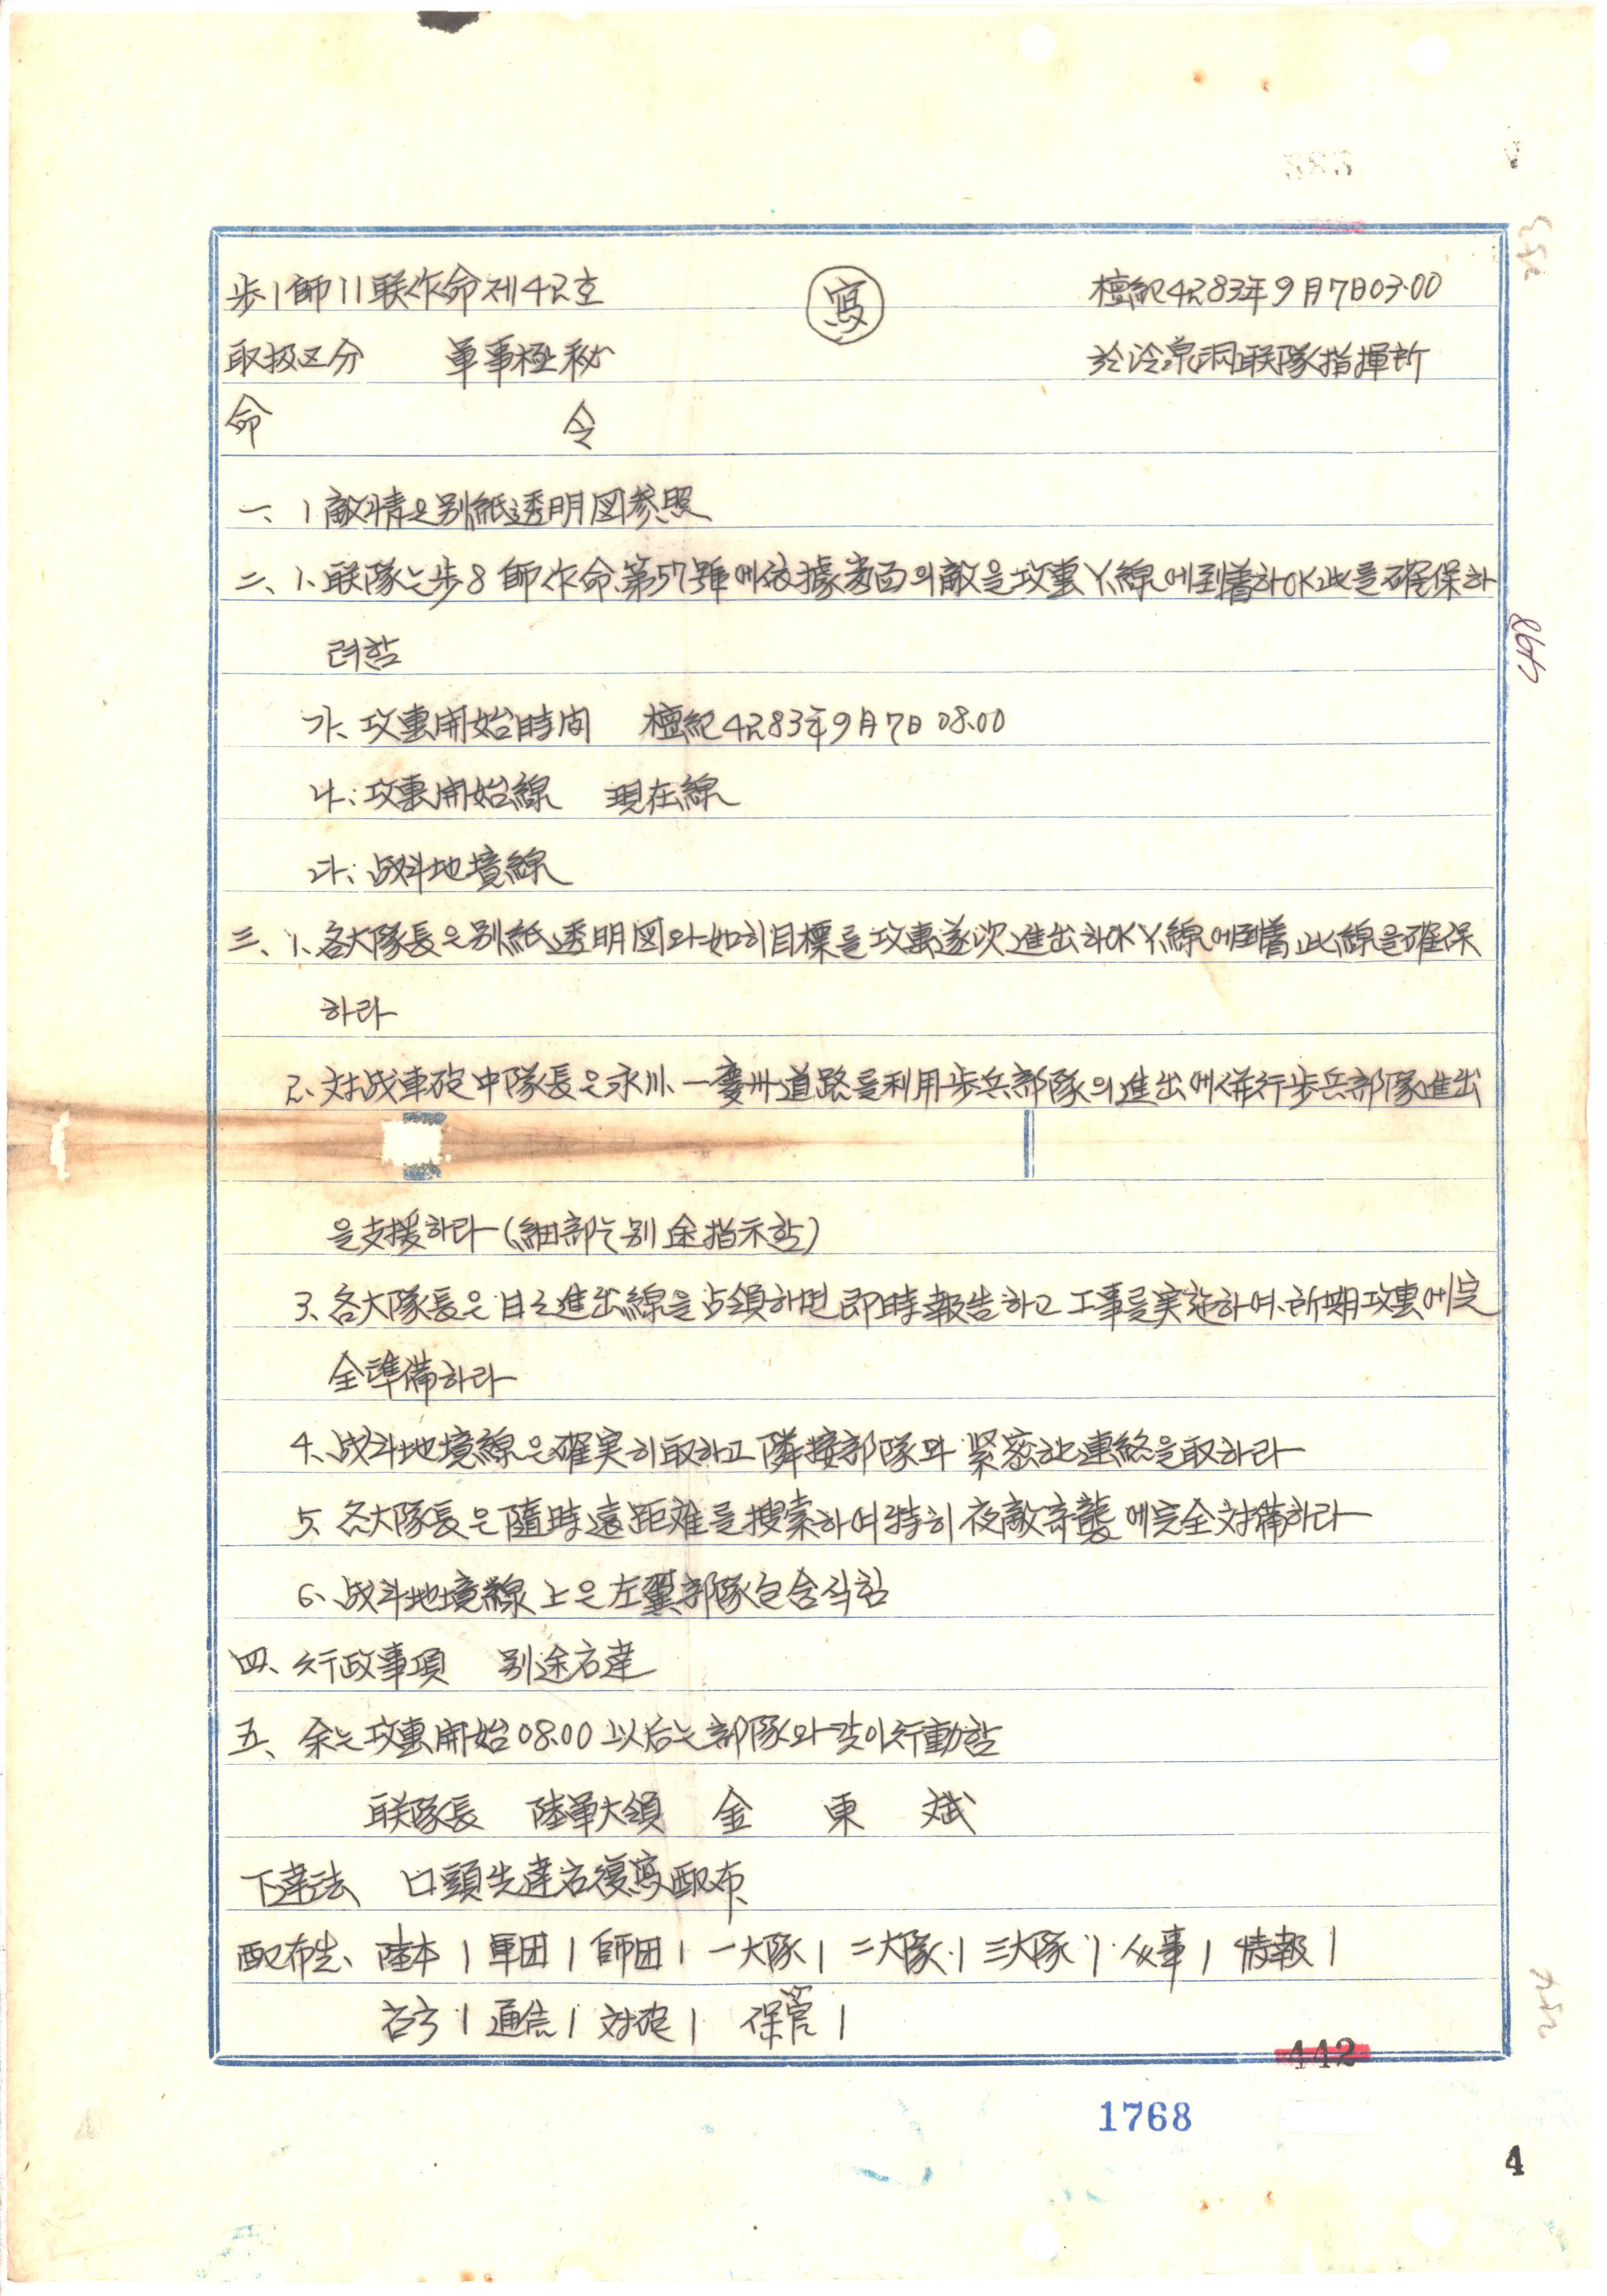 歩1師11联作命제42호 寫 檀紀4283年9月7日03.00
取扱区分 軍事極秘 於冷泉洞联隊指揮所
命 令
一、1 敵情은別紙透明図参照
二、1、联隊는歩8師作命第57號에依據當面의敵을攻裏Y線에到着하야此를確保하
려함
가、攻裏開始時間 檀紀4283年9月7日 08.00
나、攻裏開始線 現在線
다、战斗地境線
三、1、各大隊長은別紙透明図와如히目標를攻裏逐次進出하야Y線에到着此線을確保
하라
2、対战車砲中隊長은永川—慶州道路를利用歩兵部隊의進出에併行歩兵部隊進出
을支援하라(細部는別途指示함)
3、各大隊長은日々進出線을占領하면即時報告하고工事를実施하여所期攻裏에完
全準備하라
4、战斗地境線은確実히取하고隣接部隊와緊密한連絡을取하라
5、各大隊長은隨時遠距离를搜索하여特히夜敵奇襲에完全対備하라
6、战斗地境線上은左翼部隊包含식힘
四、行政事項 別途右達
五、余는攻裏開始08.00以后는部隊와같이行動함
联隊長 陸軍大領 金 東 斌
下達法 口頭先達后復寫配布
配布先、陸本1 軍団1 師団1 一大隊1 二大隊1 三大隊1 人事1 情報1
通信1 対砲1 保管1
442
1768
4
498